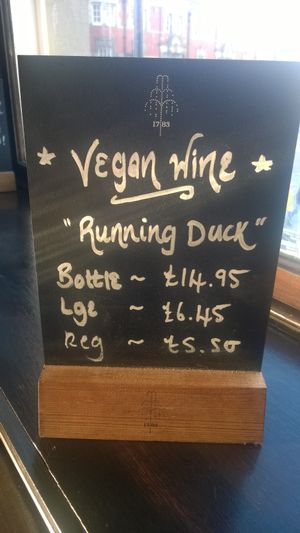 1783
* Vegan Wine *
"Running Duck"
Bottle ~ £14.95
Lge ~ £6.45
Reg ~ £5.50
1783